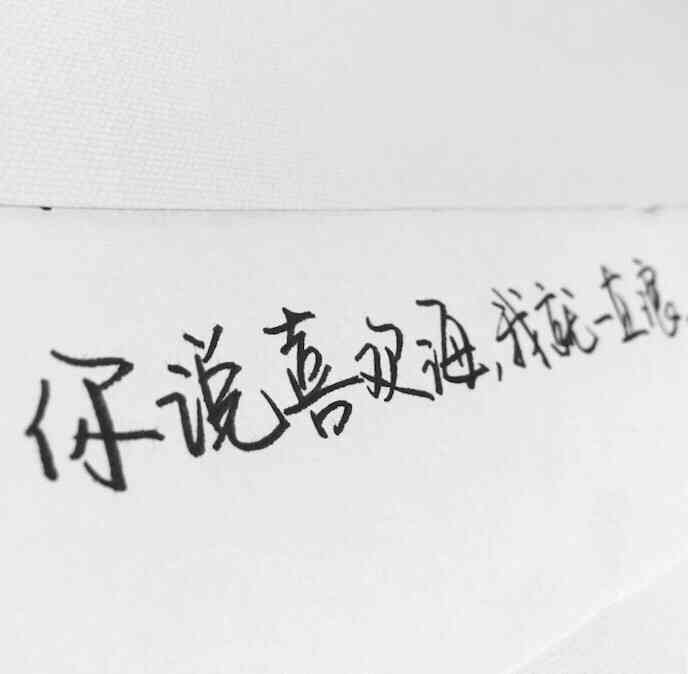 你说喜欢海,我就一直浪。